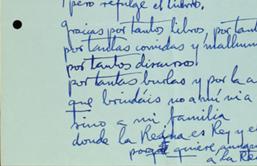 pero refulge el libro,
gracias por tanto libro, por tant
por tantas comidas y
por tantos discursos
por tantas burlas y por la a
que brindáis no a mi vía
sino a mi familia
donde la Reina es Rey y e
porque quiere
a La Re